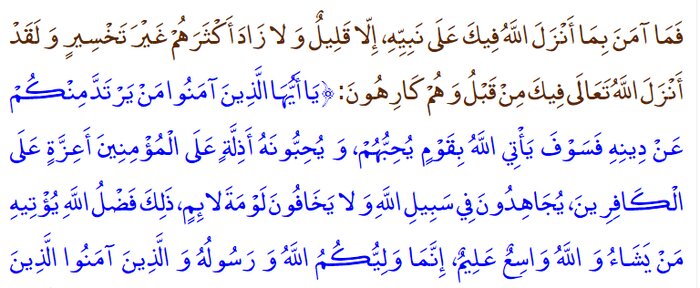 فَمَا آمَنَ بِمَا أَنْزَلَ اللَّهُ فِيكَ عَلَى نَبِيِّهِ، إِلَّا قَلِيلٌ وَ لَا زَادَ أَكْثَرَهُمْ غَيْرَ تَخْسِيرٍ وَ لَقَدْ
أَنْزَلَ اللَّهُ تَعَالَى فِيكَ مِنْ قَبْلُ وَ هُمْ كَارِهُونَ: ﴿يَا أَيُّهَا الَّذِينَ آمَنُوا مَنْ يَرْتَدَّ مِنْكُمْ
عَنْ دِينِهِ فَسَوْفَ يَأْتِي اللَّهُ بِقَوْمٍ يُحِبُّهُمْ، وَ يُحِبُّونَهُ أَذِلَّةٍ عَلَى الْمُؤْمِنِينَ أَعِزَّةٍ عَلَى
الْكَافِرِينَ، يُجَاهِدُونَ فِي سَبِيلِ اللَّهِ وَ لَا يَخَافُونَ لَوْمَةَ لَائِمٍ، ذَلِكَ فَضْلُ اللَّهِ يُؤْتِيهِ
مَنْ يَشَاءُ وَ اللَّهُ وَاسِعٌ عَلِيمٌ، إِنَّمَا وَلِيُّكُمُ اللَّهُ وَ رَسُولُهُ وَ الَّذِينَ آمَنُوا الَّذِينَ